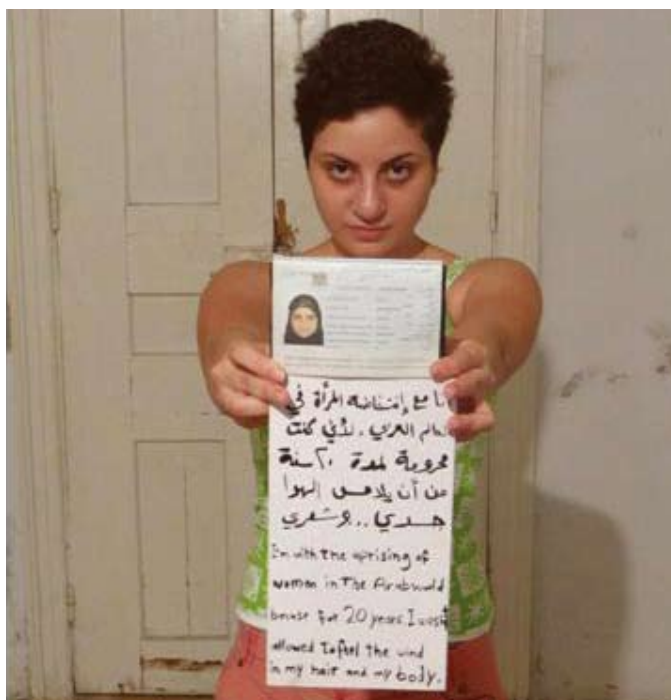 أنا مع إنتفاضة المرأة في
العالم العربي. لأني كنت
محرومة لمدة ٢٠ سنة
من أن يلامس الهوا
جسدي.. وشعري
I'm with the uprising of
women in The Arab world
becuse for 20 years I wasnt
allowed to feel the wind
in my hair and my body.